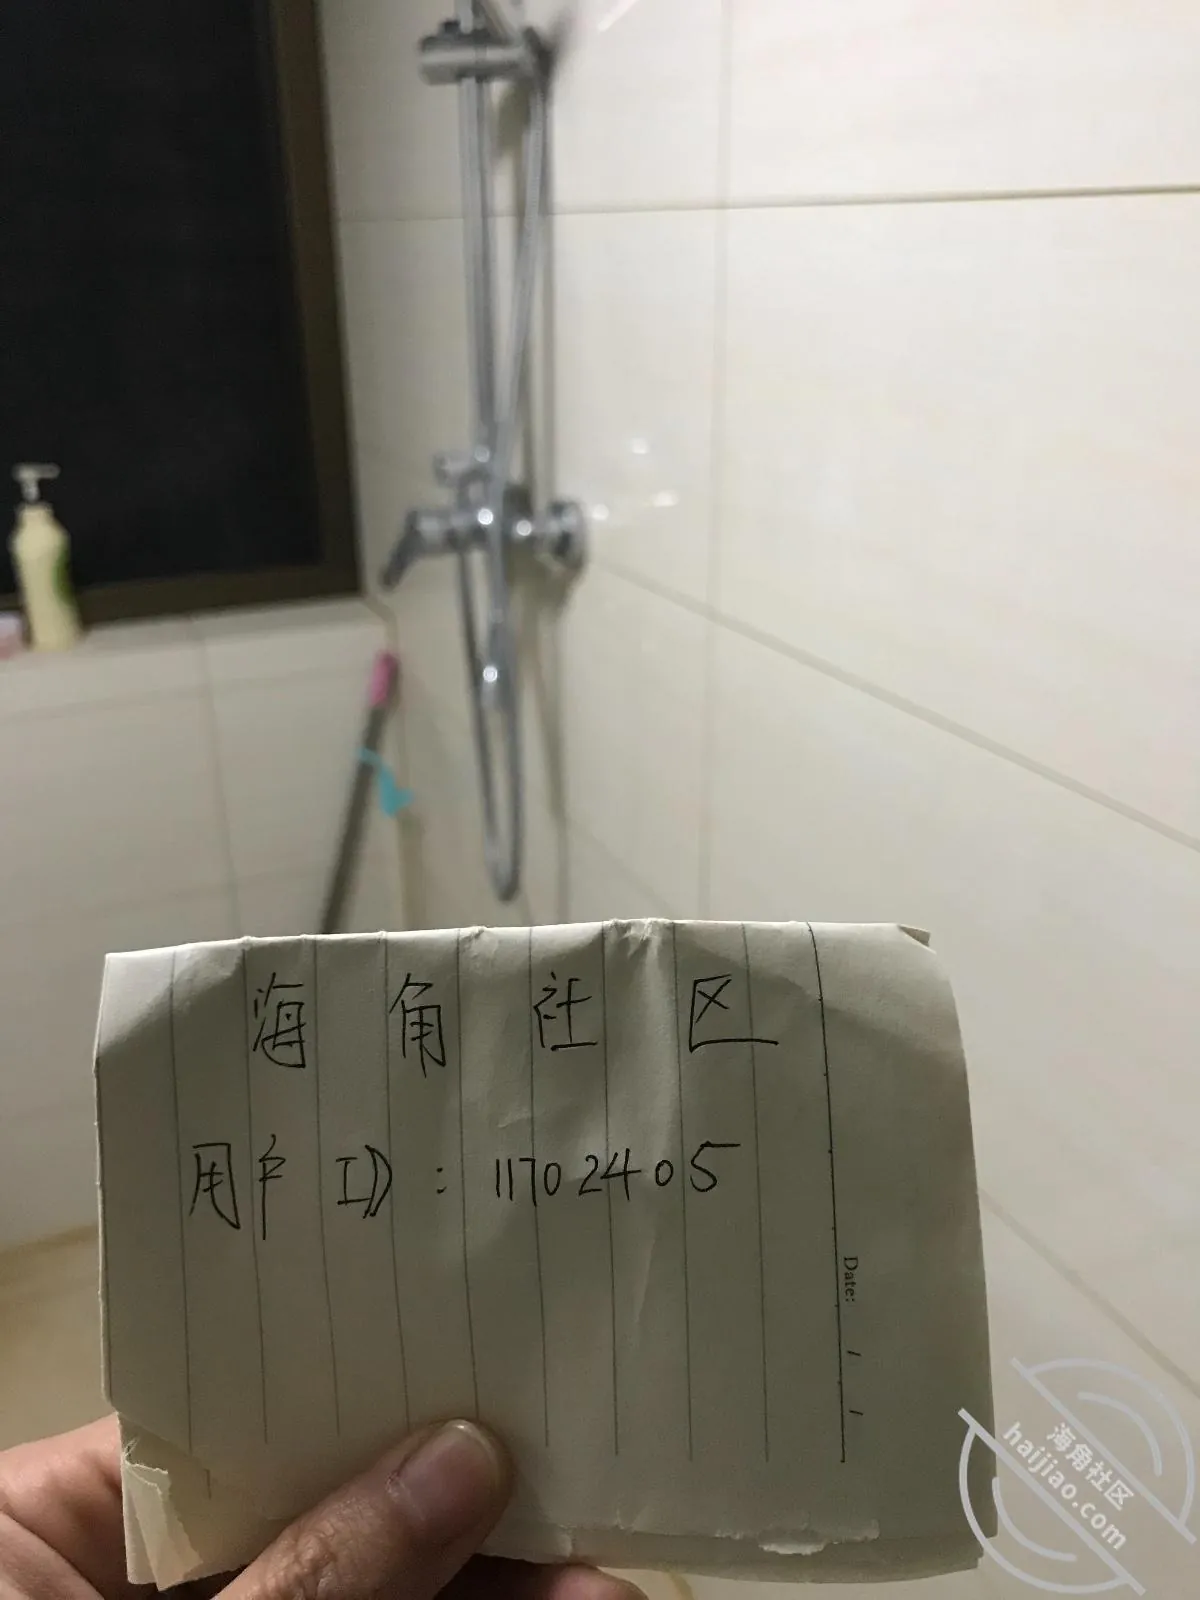 海角社区
用户ID：11702405
Date: / /
海角社区
haijiao.com